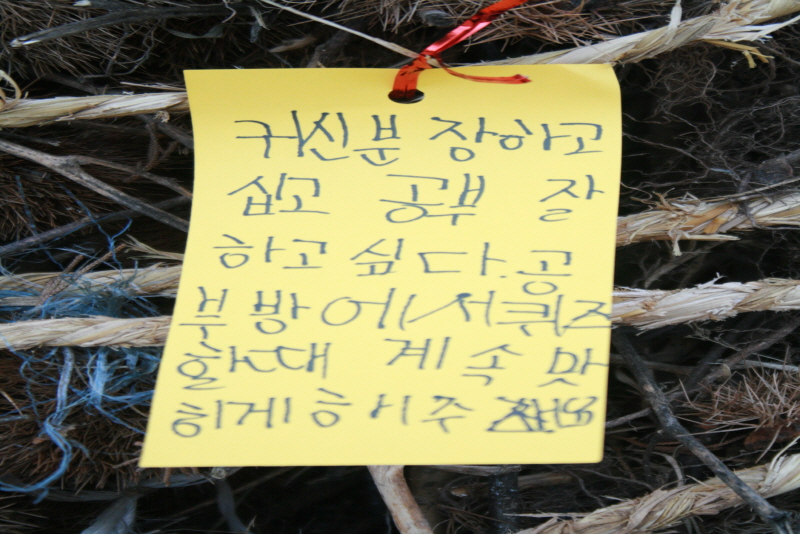 귀신분 장하고
십고 공부 잘
하고 싶다.공
부 방에서퀴즈
할때 계속 맞
히게 해주